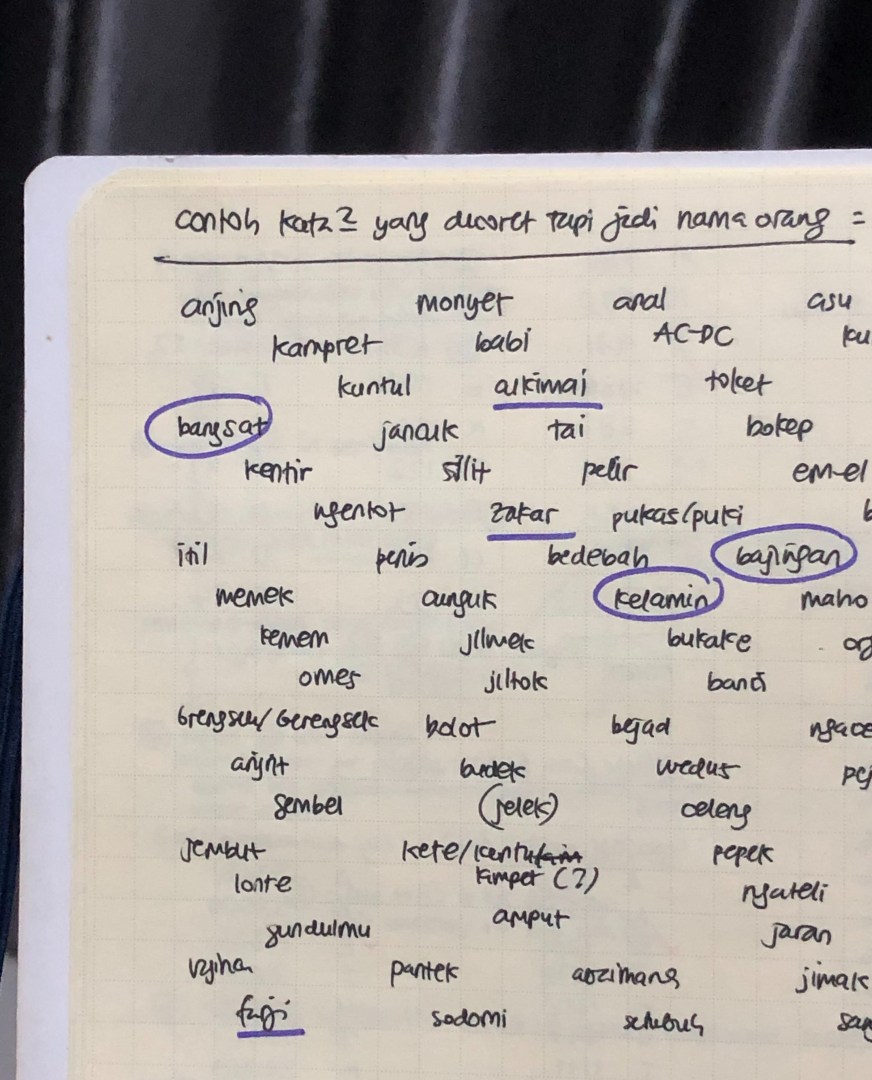 contoh kata2 yang dicoret tapi jadi nama orang =
anjing monyet anal asu
kampret babi AC-DC ku
kuntul alkimai toket
bangsat jancuk tai bokep
kentir silit pelir em-el
ngentot zakar pukas/puki b
itil penis bedebah bajingan
memek cunguk kelamin maho
kemem jilmek bukake
omes jiltok banci
Brengsek/Gerengsek bolot bejad ngace
anjrit budek wedus pej
sembel (jelek) celeng
jembut kete/ pepek
lonte kimpet (?) ngateli
gundulmu amput jaran
pantek anzimang jimak
faji sodomi